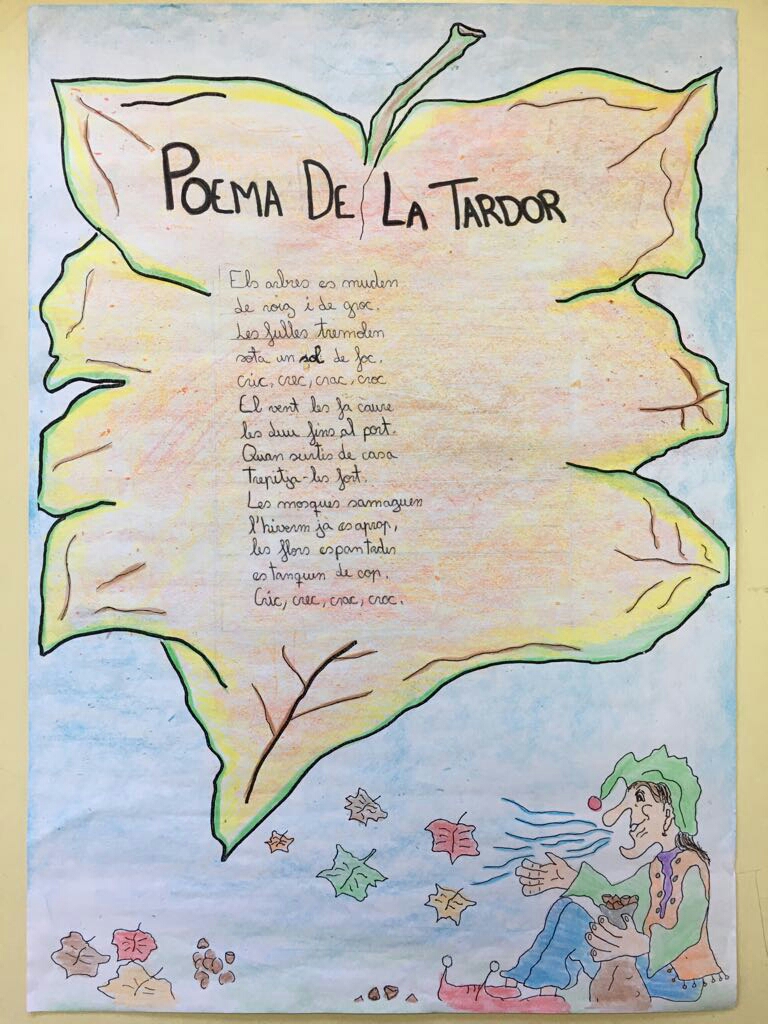 POEMA DE LA TARDOR
Els arbres es muden
de roig i de groc.
Les fulles tremolen
sota un sol de foc.
Cric, crec, crac, croc
El vent les fa caure
les duu fins al port.
Quan surtis de casa
trepitja-les fort.
Les mosques samaguen
l'hivern ja es aprop,
les flors espantades
es tanquen de cop.
Cric, crec, crac, croc.